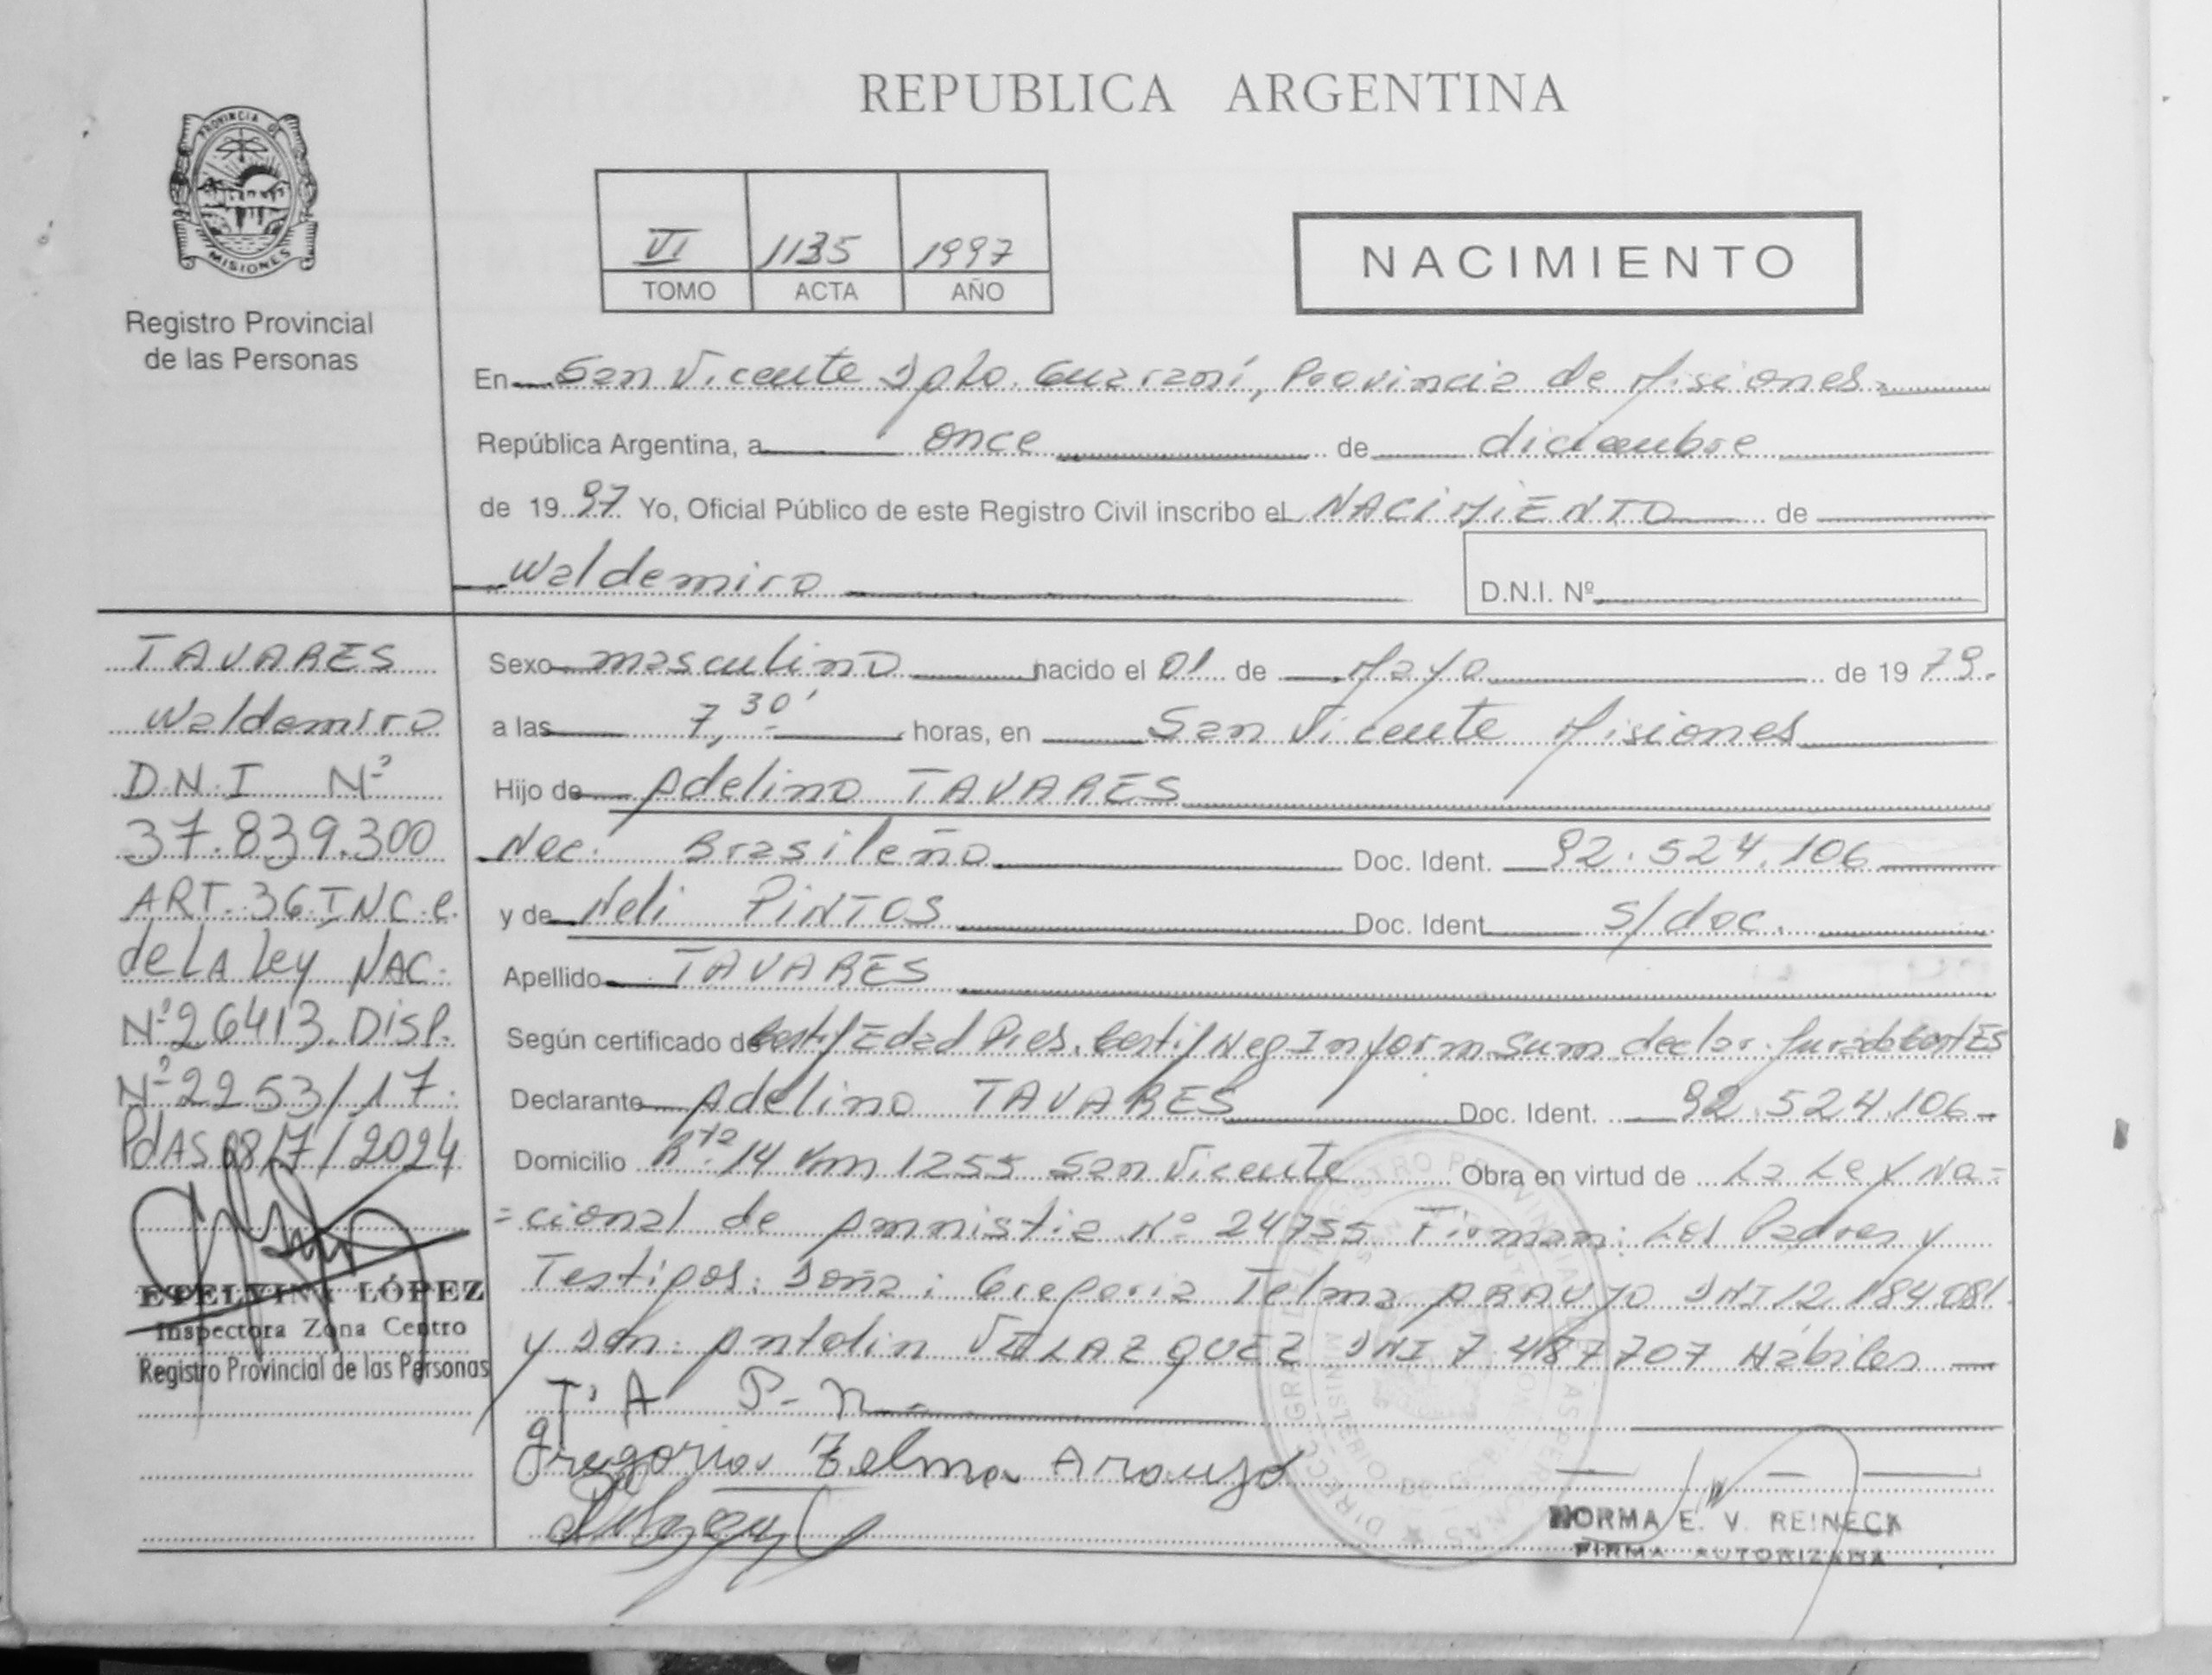 REPUBLICA ARGENTINA
PROVINCIA DE
MISIONES
Registro Provincial
de las Personas
VI 1135 1997
TOMO ACTA AÑO
NACIMIENTO
En San Vicente Dpto. Guaraní, Provincia de Misiones.
República Argentina, a once de diciembre
de 1997 Yo, Oficial Público de este Registro Civil inscribo el NACIMIENTO de
Waldemiro
D.N.I. Nº
TAVARES
Waldemiro
D.N.I Nº
37.839.300
ART. 36 INC. c.
de LA Ley NAC.
Nº 26413. DISP.
Nº 2253/17.
PdAS 08/7/2024
ETELVINA LÓPEZ
Inspectora Zona Centro
Registro Provincial de las Personas
Sexo masculino nacido el 01 de Mayo de 1979.
a las 7,30' horas, en San Vicente Misiones
Hijo de Adelino TAVARES
Nac. Brasileño Doc. Ident. 92.524.106
y de Neli PINTOS Doc. Ident. s/doc.
Apellido TAVARES
Según certificado de Certif Edad Pres. Certif Neg Inform Sum declar. Jurada
Declarante Adelino TAVARES Doc. Ident. 92.524.106
Domicilio Rta. 14 Km 1255 San Vicente Obra en virtud de La Ley Na=
=cional de Amnistia Nº 24755 Firman: Los Padres y
Testigos: Doña: Gregoria Telma ARAUJO DNI 12.184.081
y Don: Antolin VELAZQUEZ DNI 7.487.707 Hábiles
T. A P. N
Gregoria Telma Araujo
NORMA E. V. REINECK
FIRMA AUTORIZADA